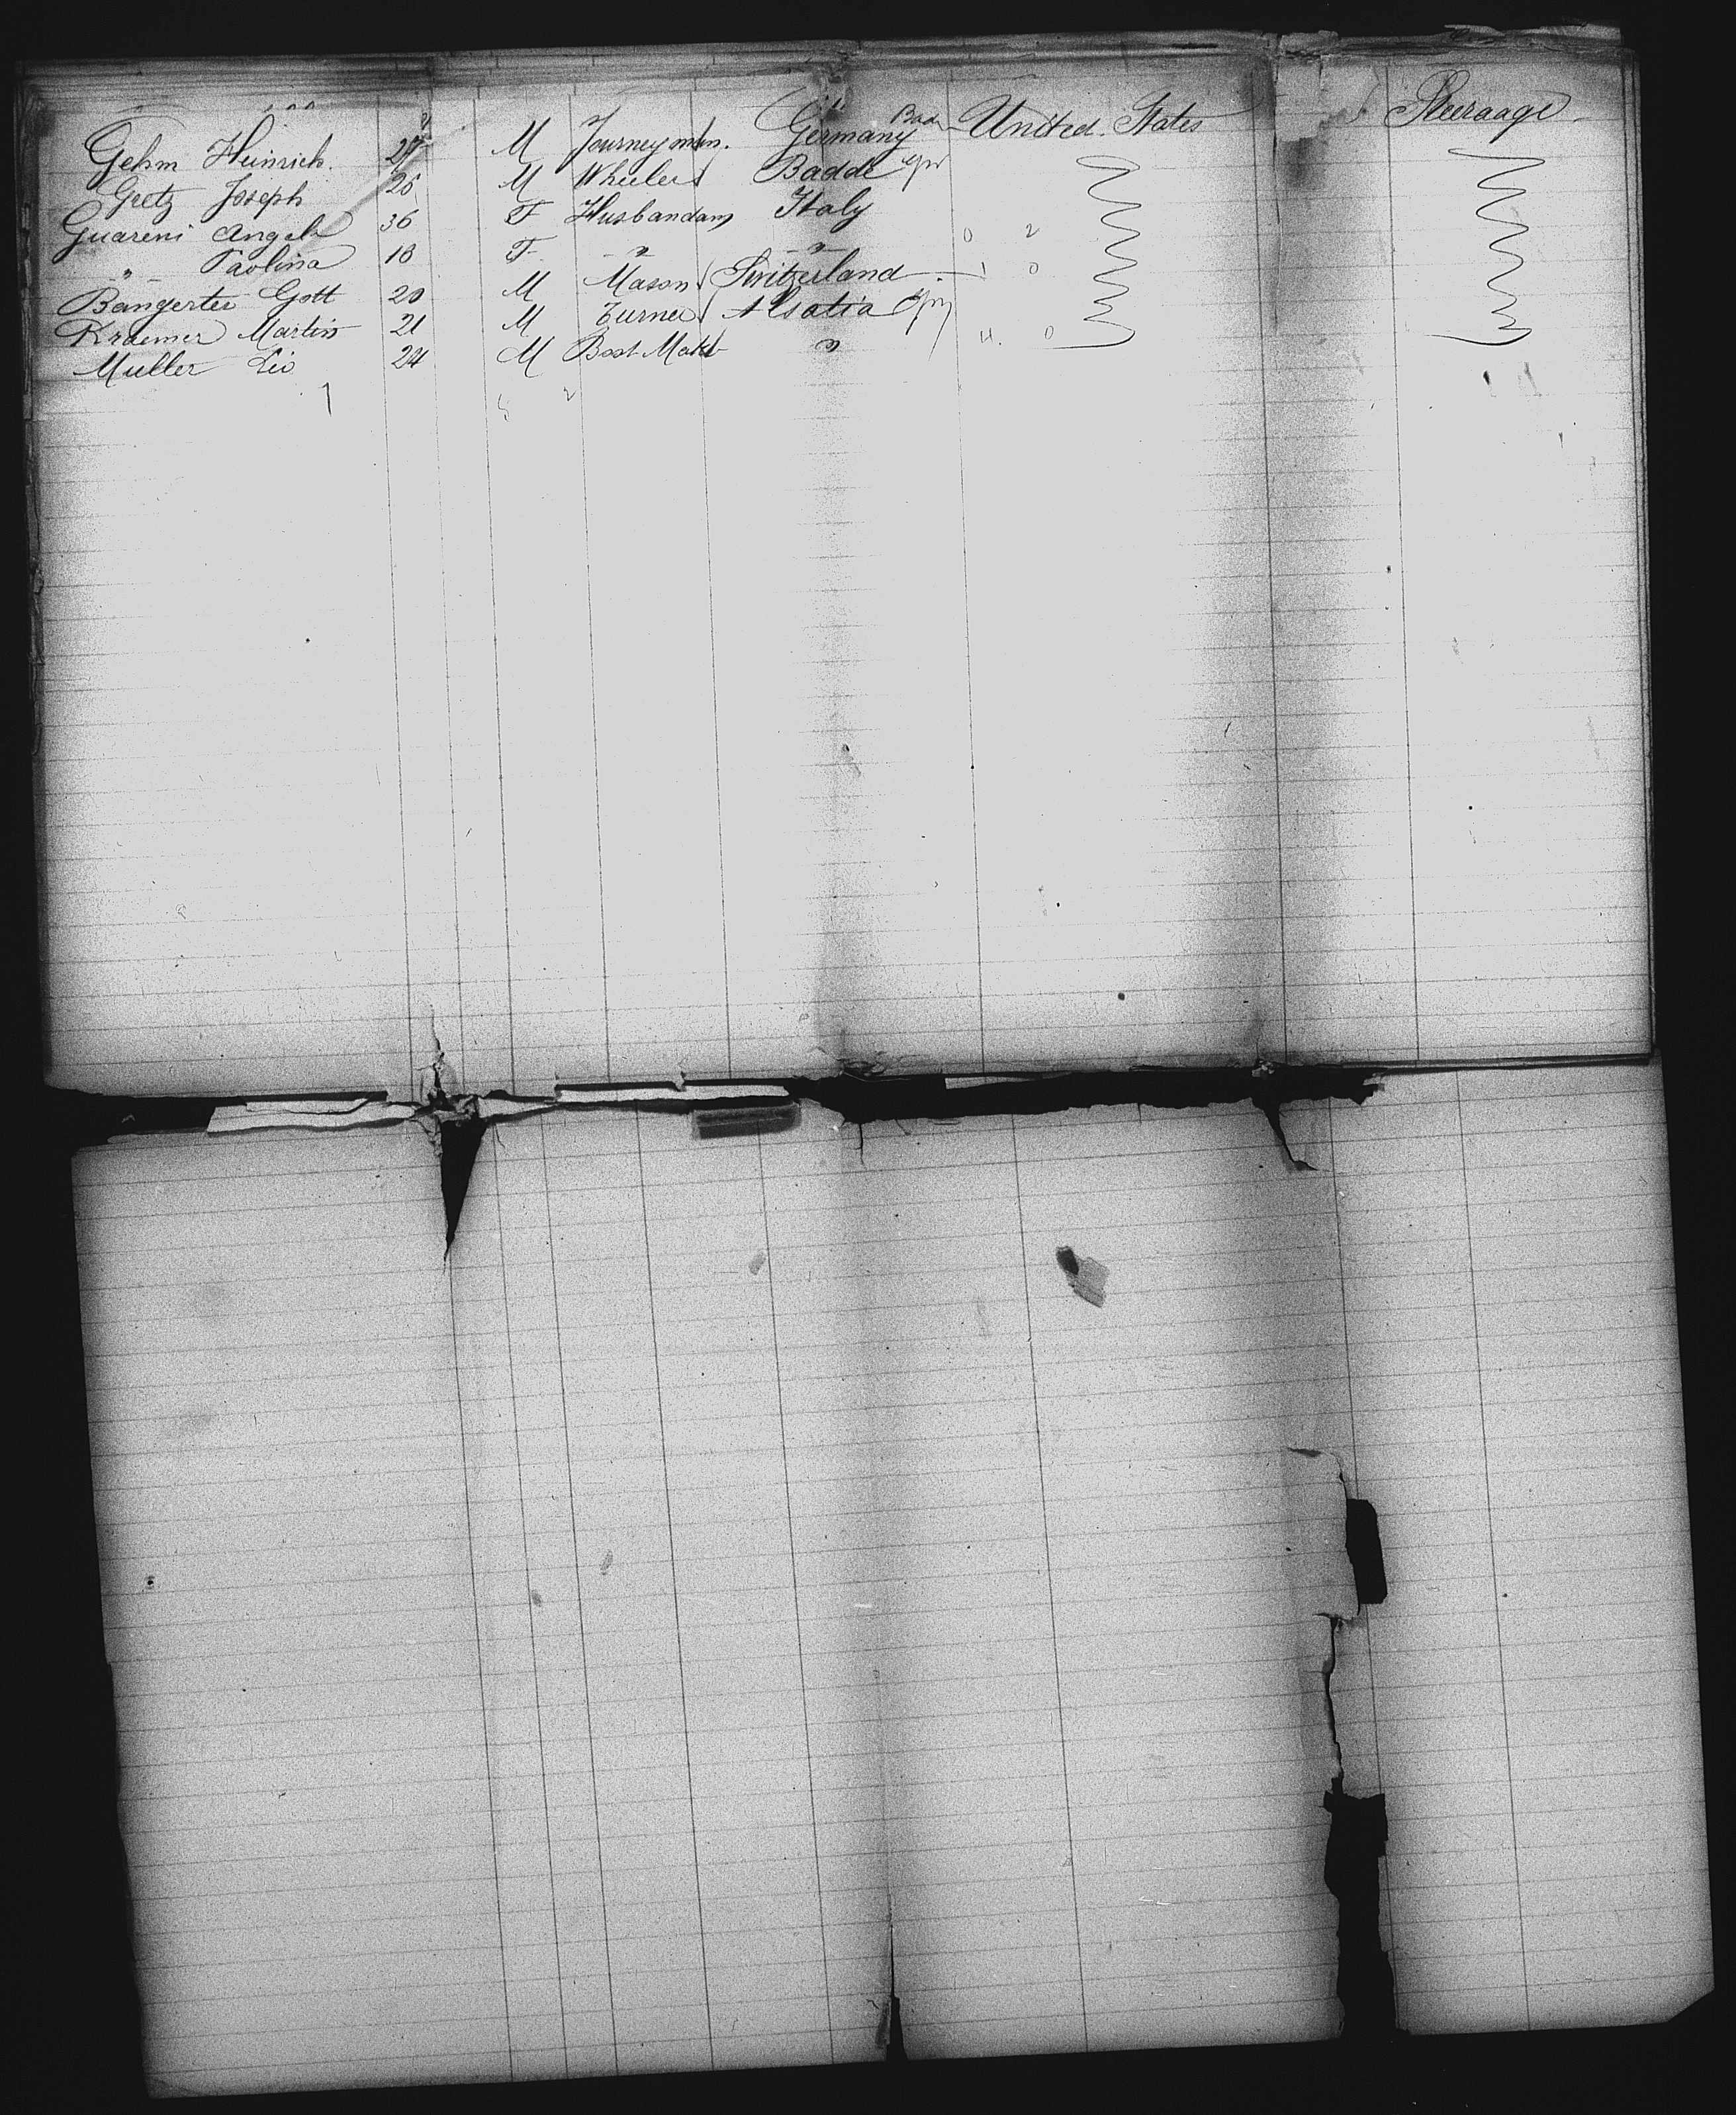 Gehm Heinrich. 27 M Journeyman. Germany Bad United States Steeraage
Getz Joseph 26 M Wheeler Badde
Guareni Angela 36 F Husbandam Italy 0 2
" Paolina 18 F " "
Bangerter Gott 20 M Mason Switzerland 1 0
Kraemer Martin 21 M Turner Alsatia
Muller Leo 24 M Boot Maker " 4. 0
7 5 2